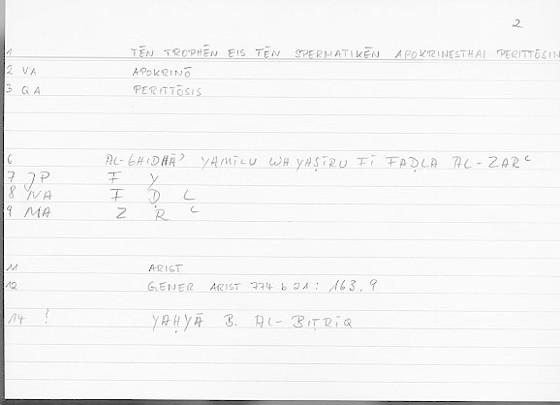 2
1 TĒN TROPHĒN EIS TĒN SPERMATIKĒN APOKRINESTHAI PERITTŌSIN
2 VA APOKRINŌ
3 QA PERITTŌSIS
6 AL-GHIDHĀʾ YAMĪLU WA YAṢĪRU FĪ FAḌLA AL-ZARʿ
7 JP F Y
8 NA F Ḍ L
9 MA Z R ʿ
11 ARIST
12 GENER ARIST 774 b 21 : 163.9
14 ! YAḤYĀ B. AL-BIṬRĪQ